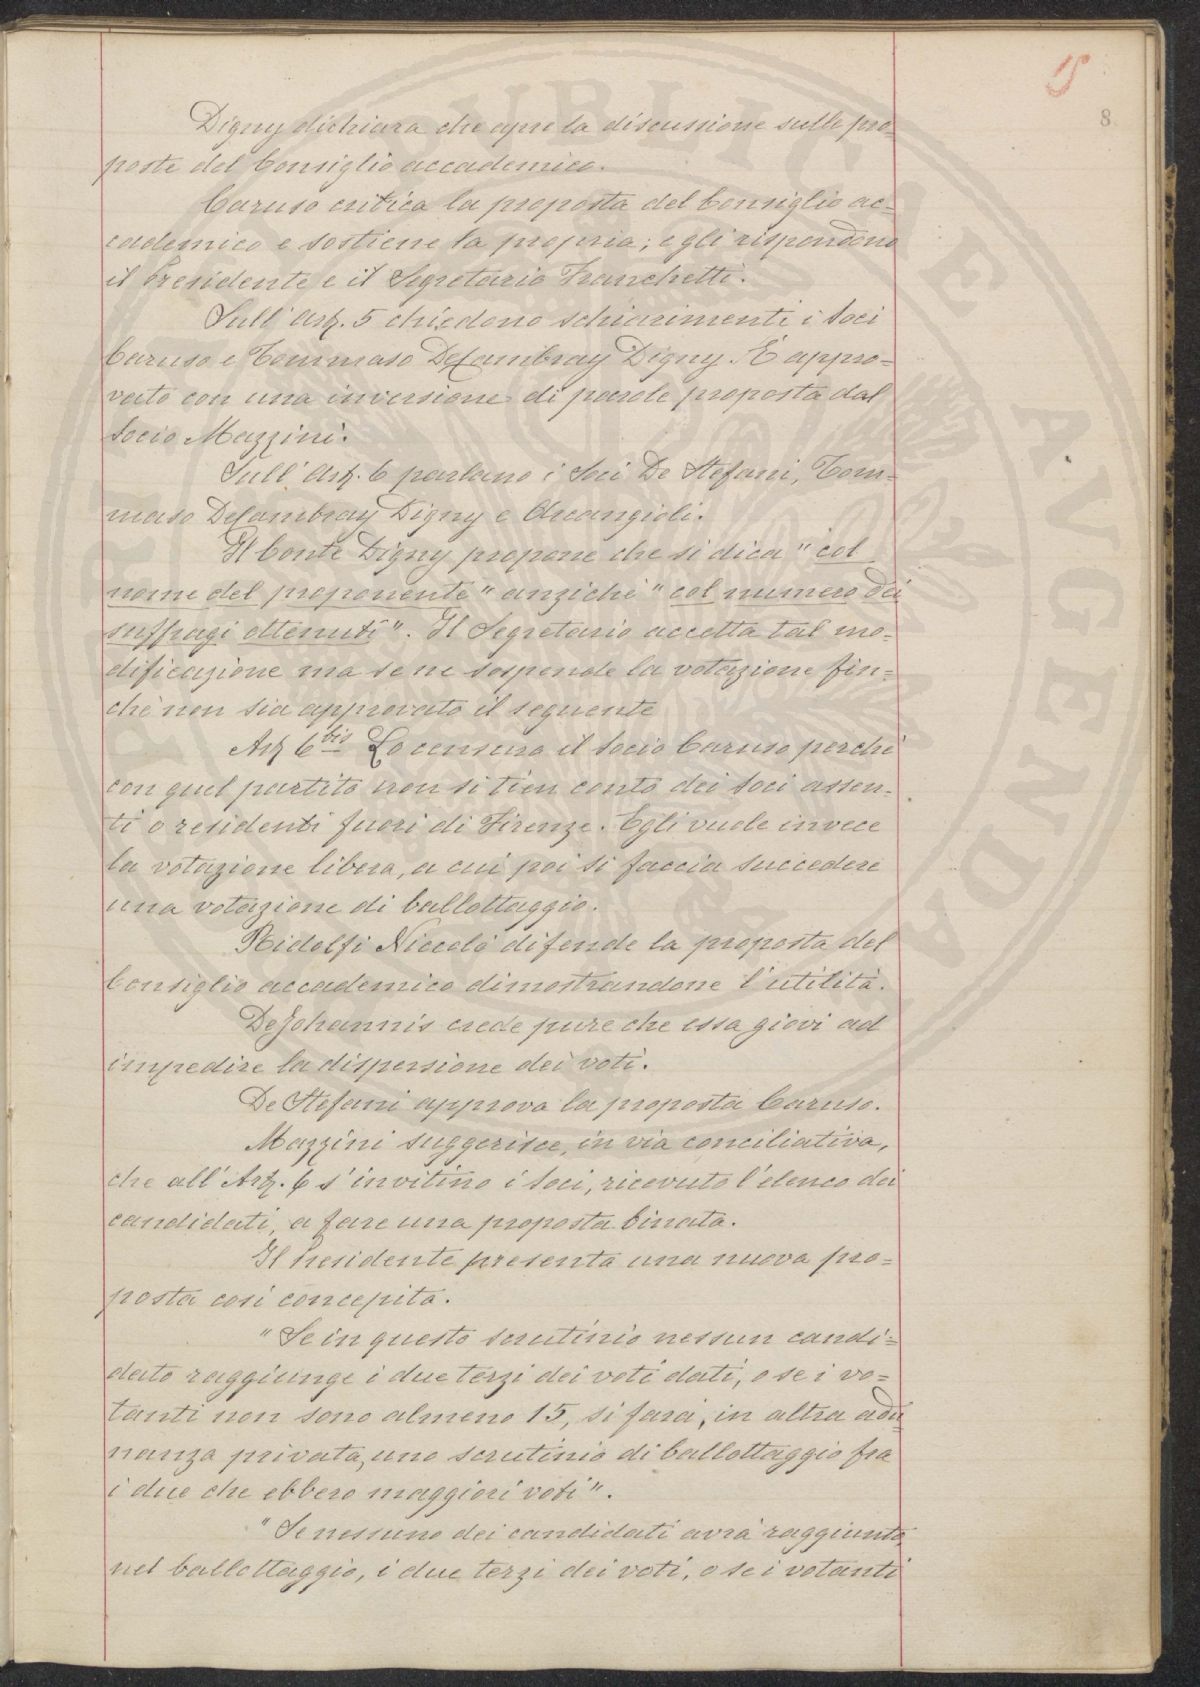 15
8
Digny dichiara che apre la discussione sulle pro=
poste del Consiglio accademico.
Caruso critica la proposta del Consiglio ac=
cademico e sostiene la propria; e gli rispondono
il Presidente e il Segretario Franchetti.
Sull' Art. 5 chiedono schiarimenti i Soci
Caruso e Tommaso DeCambray Digny. È appro=
vato con una inversione di parole proposta dal
Socio Mazzini.
Sull' Art. 6 parlano i Soci De Stefani, Tom=
maso DeCambray Digny e Arcangioli.
Il Conte Digny propone che si dica "col
nome del proponente" anziché "col numero dei
suffragi ottenuti". Il Segretario accetta tal mo=
dificazione ma se ne sospende la votazione fin=
chè non sia approvato il seguente
Art 6 bis Lo censura il Socio Caruso perchè
con quel partito non si tien conto dei Soci assen=
ti o residenti fuori di Firenze. Egli vuole invece
la votazione libera, a cui poi si faccia succedere
una votazione di ballottaggio.
Ridolfi Niccolò difende la proposta del
Consiglio accademico dimostrandone l'utilità.
DeJohannis crede pure che essa giovi ad
impedire la dispersione dei voti.
De Stefani approva la proposta Caruso.
Mazzini suggerisce, in via conciliativa,
che all' Art. 6 s'invitino i Soci, ricevuto l'elenco dei
candidati, a fare una proposta binata.
Il Presidente presenta una nuova pro=
posta così concepita.
"Se in questo scrutinio nessun candi=
dato raggiunge i due terzi dei voti dati, o se i vo=
tanti non sono almeno 15, si farà, in altra adu=
nanza privata, uno scrutinio di ballottaggio fra
i due che ebbero maggiori voti".
"Se nessuno dei candidati avrà raggiunto,
nel ballottaggio, i due terzi dei voti, o se i votanti